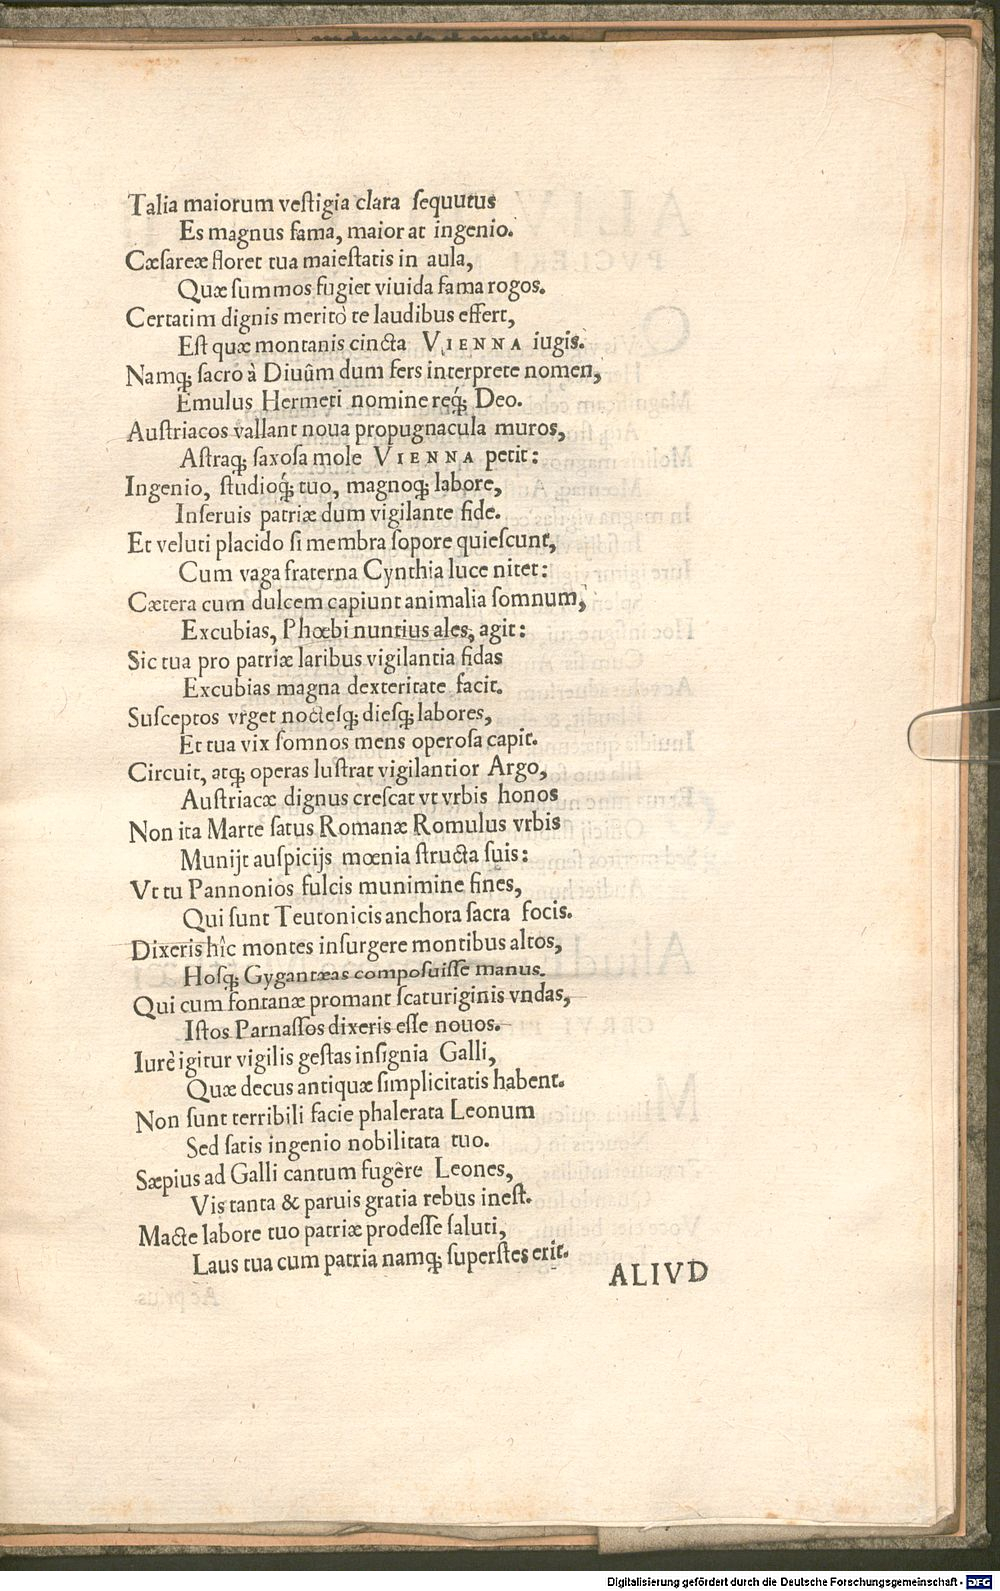 Talia maiorum veſtigia clara ſequutus
Es magnus fama, maior at ingenio.
Cæſareæ floret tua maieſtatis in aula,
Quæ ſummos fugiet viuida fama rogos.
Certatim dignis meritò te laudibus effert,
Eſt quæ montanis cincta VIENNA iugis.
Namq; ſacro à Diuûm dum fers interprete nomen,
Emulus Hermeti nomine req́; Deo.
Auſtriacos vallant noua propugnacula muros,
Aſtraq; ſaxoſa mole VIENNA petit:
Ingenio, ſtudioq́; tuo, magnoq; labore,
Inſeruis patriæ dum vigilante fide.
Et veluti placido ſi membra ſopore quieſcunt,
Cum vaga fraterna Cynthia luce nitet:
Cætera cum dulcem capiunt animalia ſomnum,
Excubias, Phœbi nuntius ales, agit:
Sic tua pro patriæ laribus vigilantia fidas
Excubias magna dexteritate facit.
Suſceptos vrget nocteſq; dieſq; labores,
Et tua vix ſomnos mens operoſa capit.
Circuit, atq; operas luſtrat vigilantior Argo,
Auſtriacæ dignus creſcat vt vrbis honos
Non ita Marte ſatus Romanæ Romulus vrbis
Munijt auſpicijs mœnia ſtructa ſuis:
Vt tu Pannonios fulcis munimine fines,
Qui ſunt Teutonicis anchora ſacra focis.
Dixeris hîc montes inſurgere montibus altos,
Hoſq; Gygantæas compoſuiſſe manus.
Qui cum fontanæ promant ſcaturiginis vndas,
Iſtos Parnaſſos dixeris eſſe nouos.
Iurè igitur vigilis geſtas inſignia Galli,
Quæ decus antiquæ ſimplicitatis habent.
Non ſunt terribili facie phalerata Leonum
Sed ſatis ingenio nobilitata tuo.
Sæpius ad Galli cantum fugêre Leones,
Vis tanta & paruis gratia rebus ineſt.
Macte labore tuo patriæ prodeſſe ſaluti,
Laus tua cum patria namq; ſuperſtes erit.
ALIVD
Digitalisierung gefördert durch die Deutsche Forschungsgemeinschaft - DFG